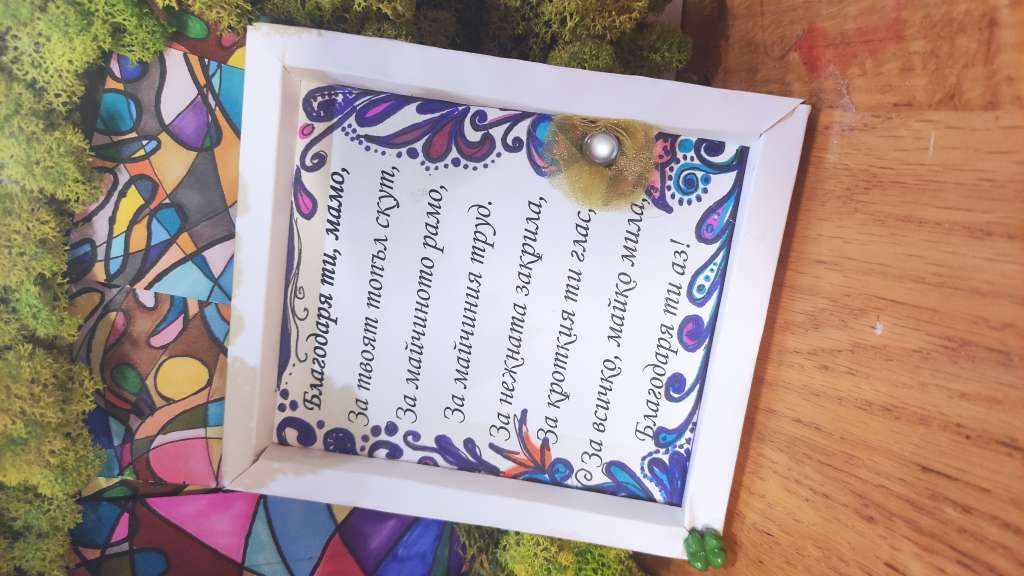 Благодаря ти, мамо,
За твоят топъл скут,
За майчиното рамо,
За майчиния труд.
За нежната закрила,
За кроткия ти глас,
За всичко, майко мила,
Благодаря ти аз!